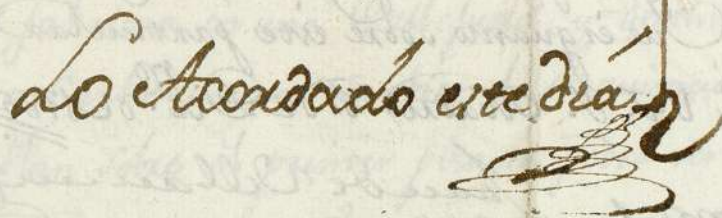 Lo Acordado este diá